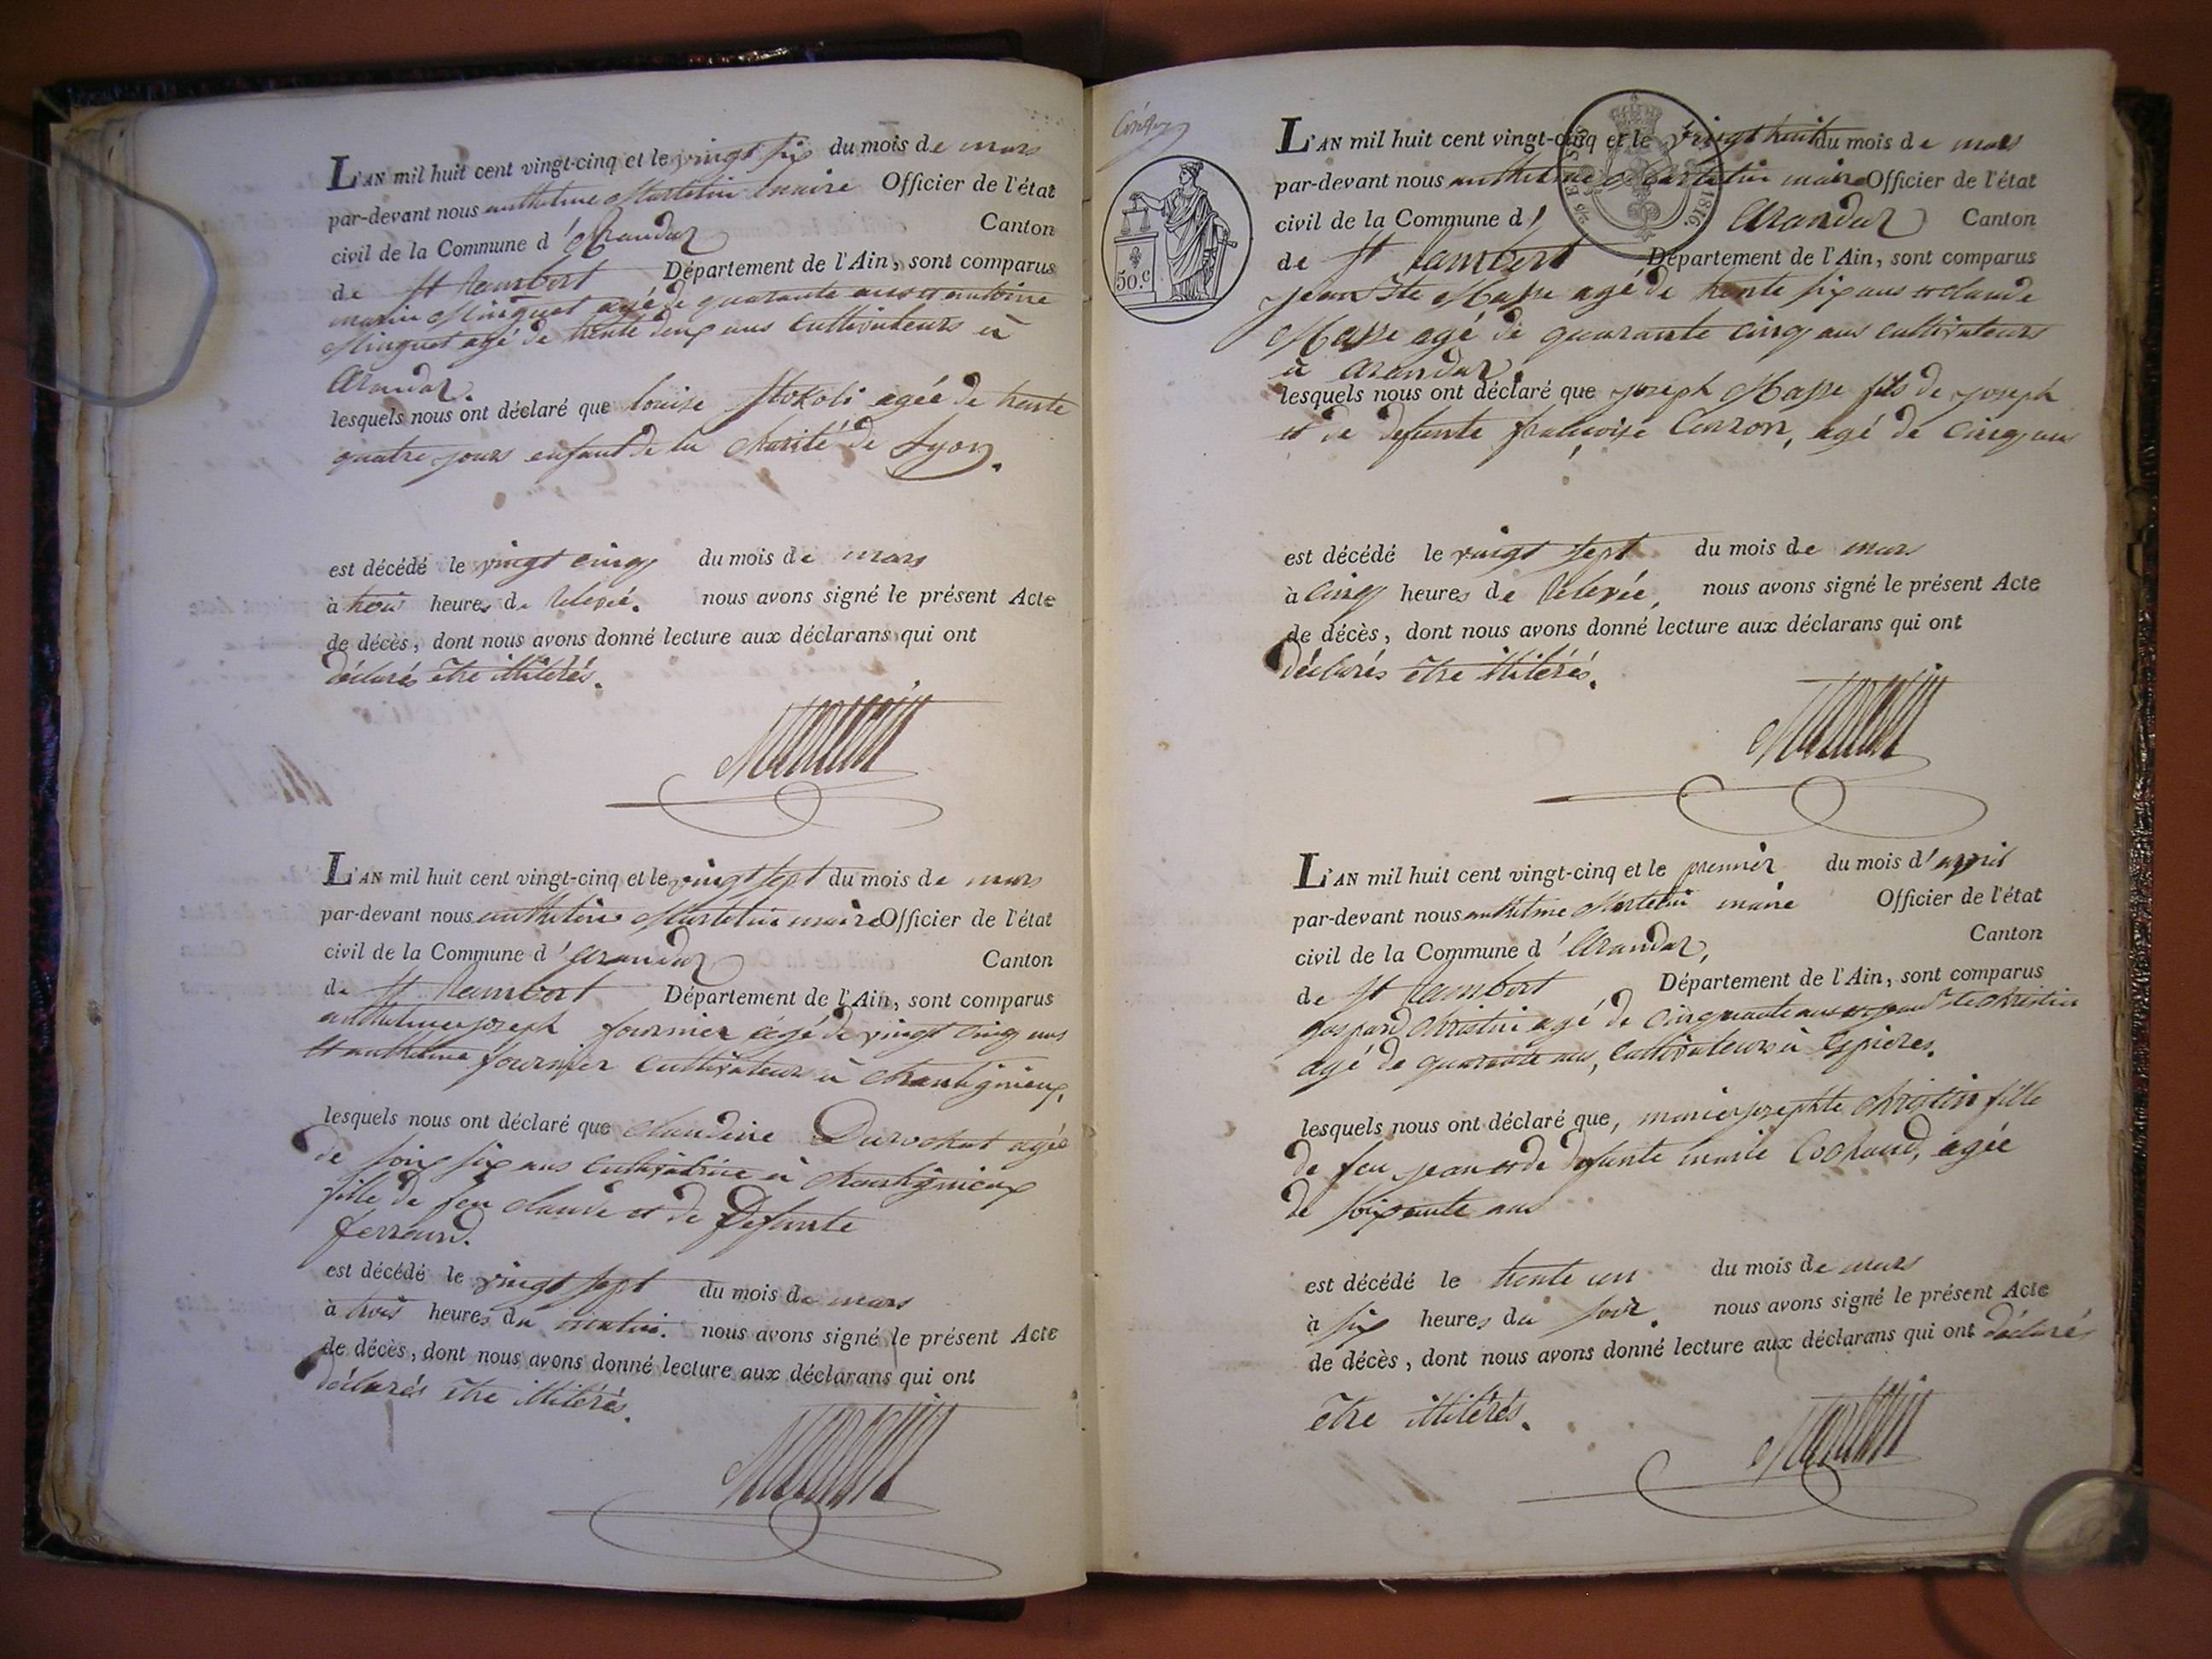 L'AN mil huit cent vingt-cinq et le vingt six du mois de mars
par-devant nous anthelme Martelin maire Officier de l'état
civil de la Commune d'Arandaz Canton
de St Rambert Département de l'Ain, sont comparus
marin Minguet agé de quarante ans et antoine
Minguet agé de trente deux ans cultivateurs à
Arandaz.
lesquels nous ont déclaré que louise agée de trente
quatre jours enfant de la charité de Lyon.
est décédé le vingt cinq du mois de mars
à trois heures de relevée. nous avons signé le présent Acte
de décès, dont nous avons donné lecture aux déclarans qui ont
déclarés être illitérés.
Martelin
L'AN mil huit cent vingt-cinq et le vingt sept du mois de mars
par-devant nous anthelme Martelin maire Officier de l'état
civil de la Commune d'Arandaz Canton
de St Rambert Département de l'Ain, sont comparus
anthelme joseph fournier agé de vingt cinq ans
et anthelme fournier cultivateurs à chantignieux,
lesquels nous ont déclaré que claudine Durochat agée
de soix six ans cultivatrice à chantignieux
fille de feu claude et de Defunte
ferrand.
est décédé le vingt sept du mois de mars
à trois heures du matin. nous avons signé le présent Acte
de décès, dont nous avons donné lecture aux déclarans qui ont
déclarés être illitérés.
Martelin
50.c
1816
L'AN mil huit cent vingt-cinq et le vingt huit du mois de mars
par-devant nous anthelme Martelin maire Officier de l'état
civil de la Commune d' Arandaz Canton
de St Rambert Département de l'Ain, sont comparus
jean Bte Masse agé de trente six ans et claude
Masse agé de quarante cinq ans cultivateurs
à Arandaz.
lesquels nous ont déclaré que joseph Masse fils de joseph
et de defunte françoise Carron, agé de cinq ans
est décédé le vingt sept du mois de mars
à cinq heures de relevée, nous avons signé le présent Acte
de décès, dont nous avons donné lecture aux déclarans qui ont
déclarés être illitérés.
Martelin
L'AN mil huit cent vingt-cinq et le premier du mois d'avril
par-devant nous anthelme Martelin maire Officier de l'état
civil de la Commune d'Arandaz, Canton
de St Rambert Département de l'Ain, sont comparus
gaspard christin agé de cinquante ans et jean Bte christin
agé de quarante ans, cultivateurs à Espieres.
lesquels nous ont déclaré que, marie josephte christin fille
de feu jean et de defunte marie Cochand, agée
de soixante ans
est décédé le trente un du mois de mars
à six heures du soir. nous avons signé le présent Acte
de décès, dont nous avons donné lecture aux déclarans qui ont déclarés
être illitérés.
Martelin